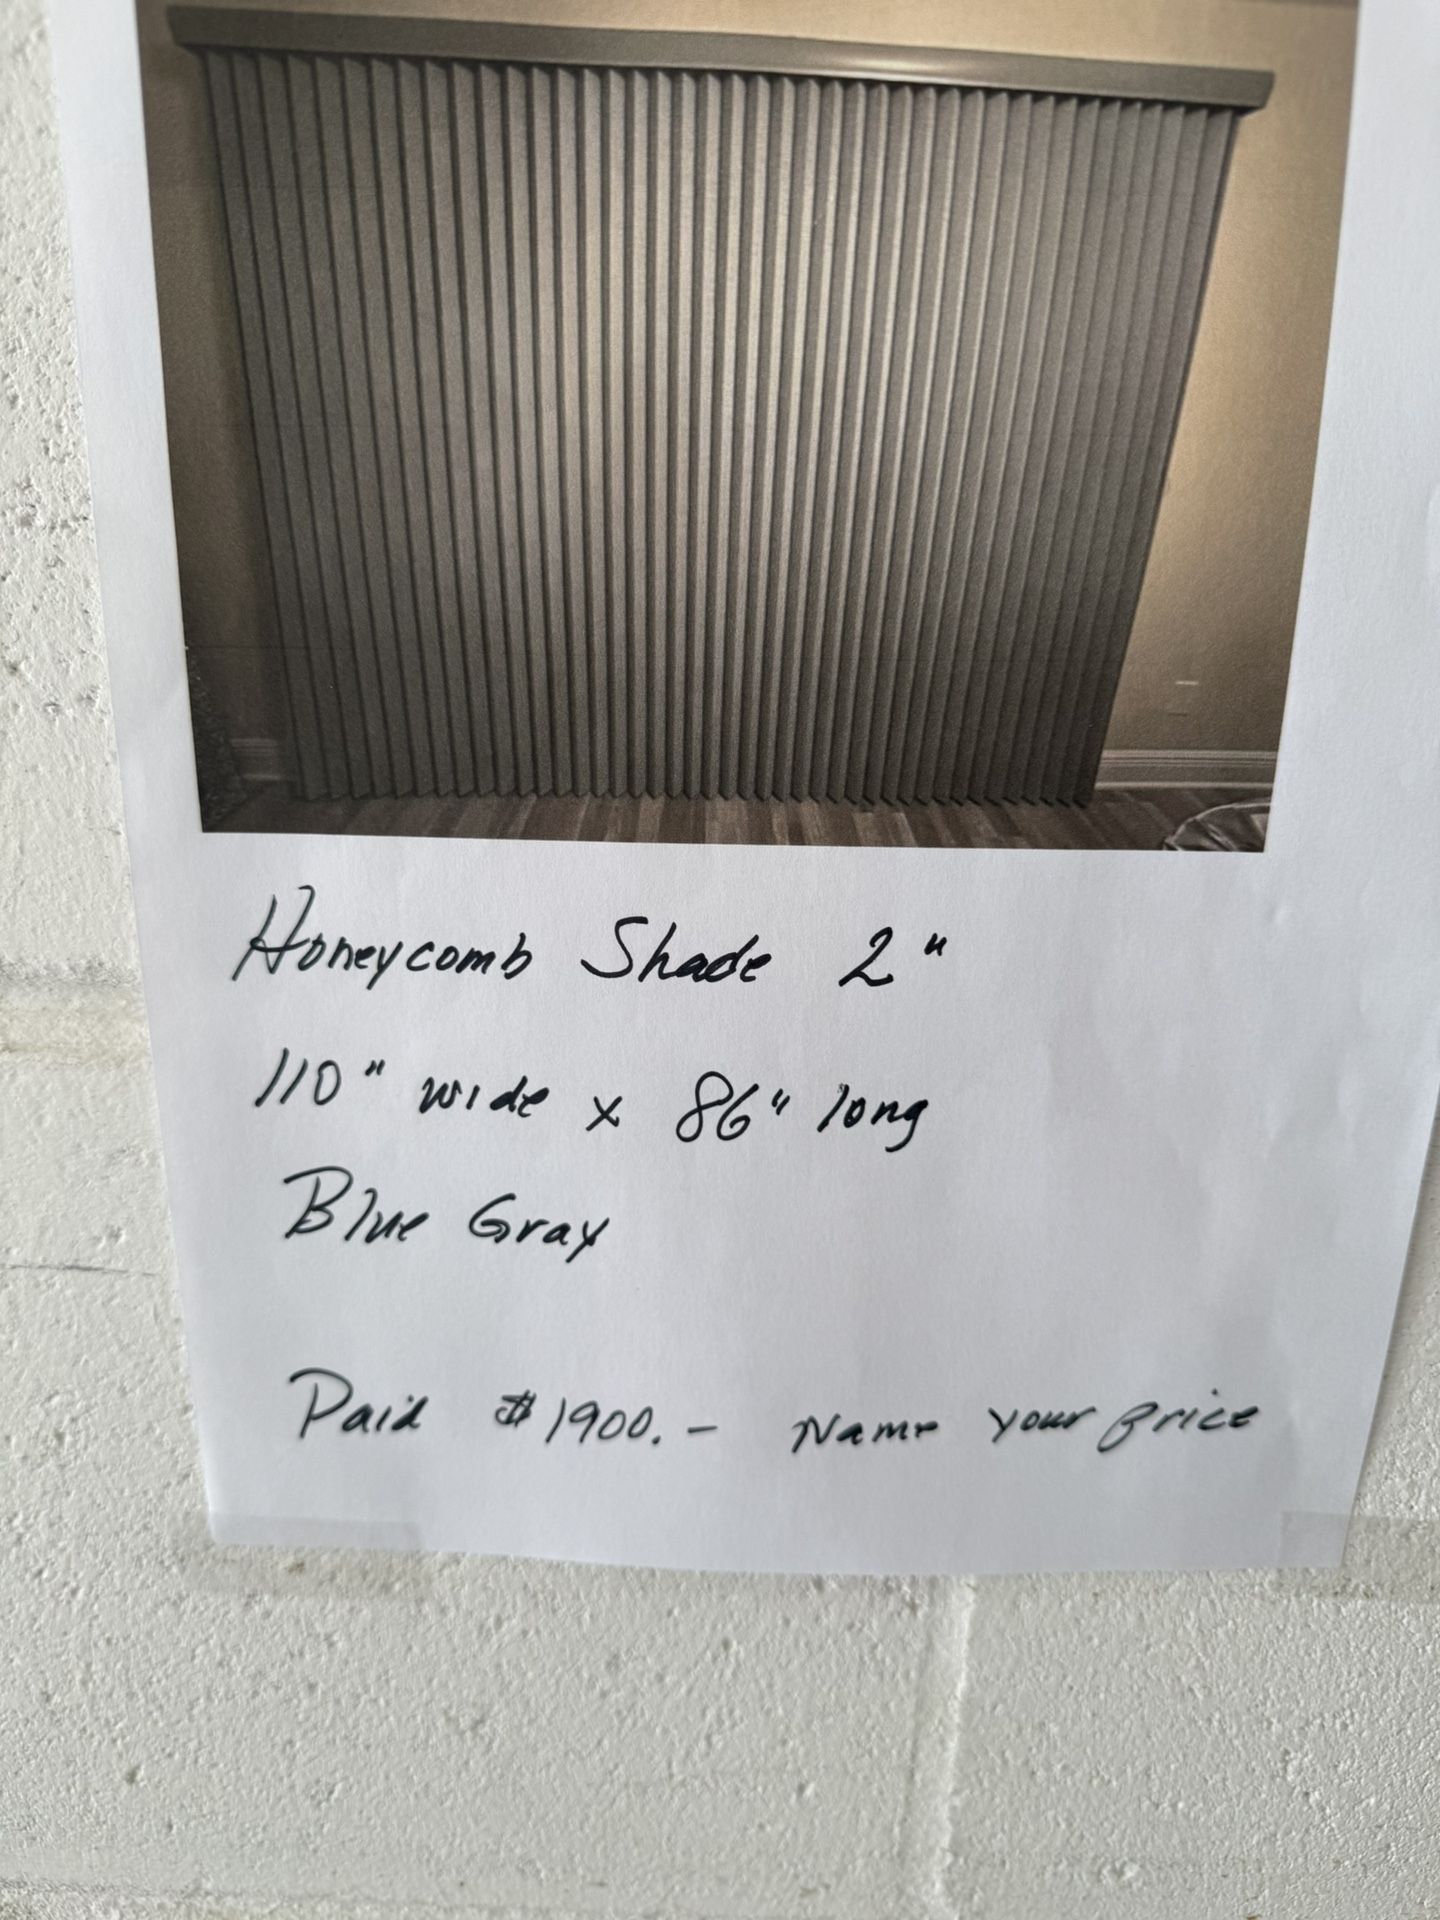 Honeycomb Shade 2"
110" wide x 86" long
Blue Gray
Paid $1900.- Name your price